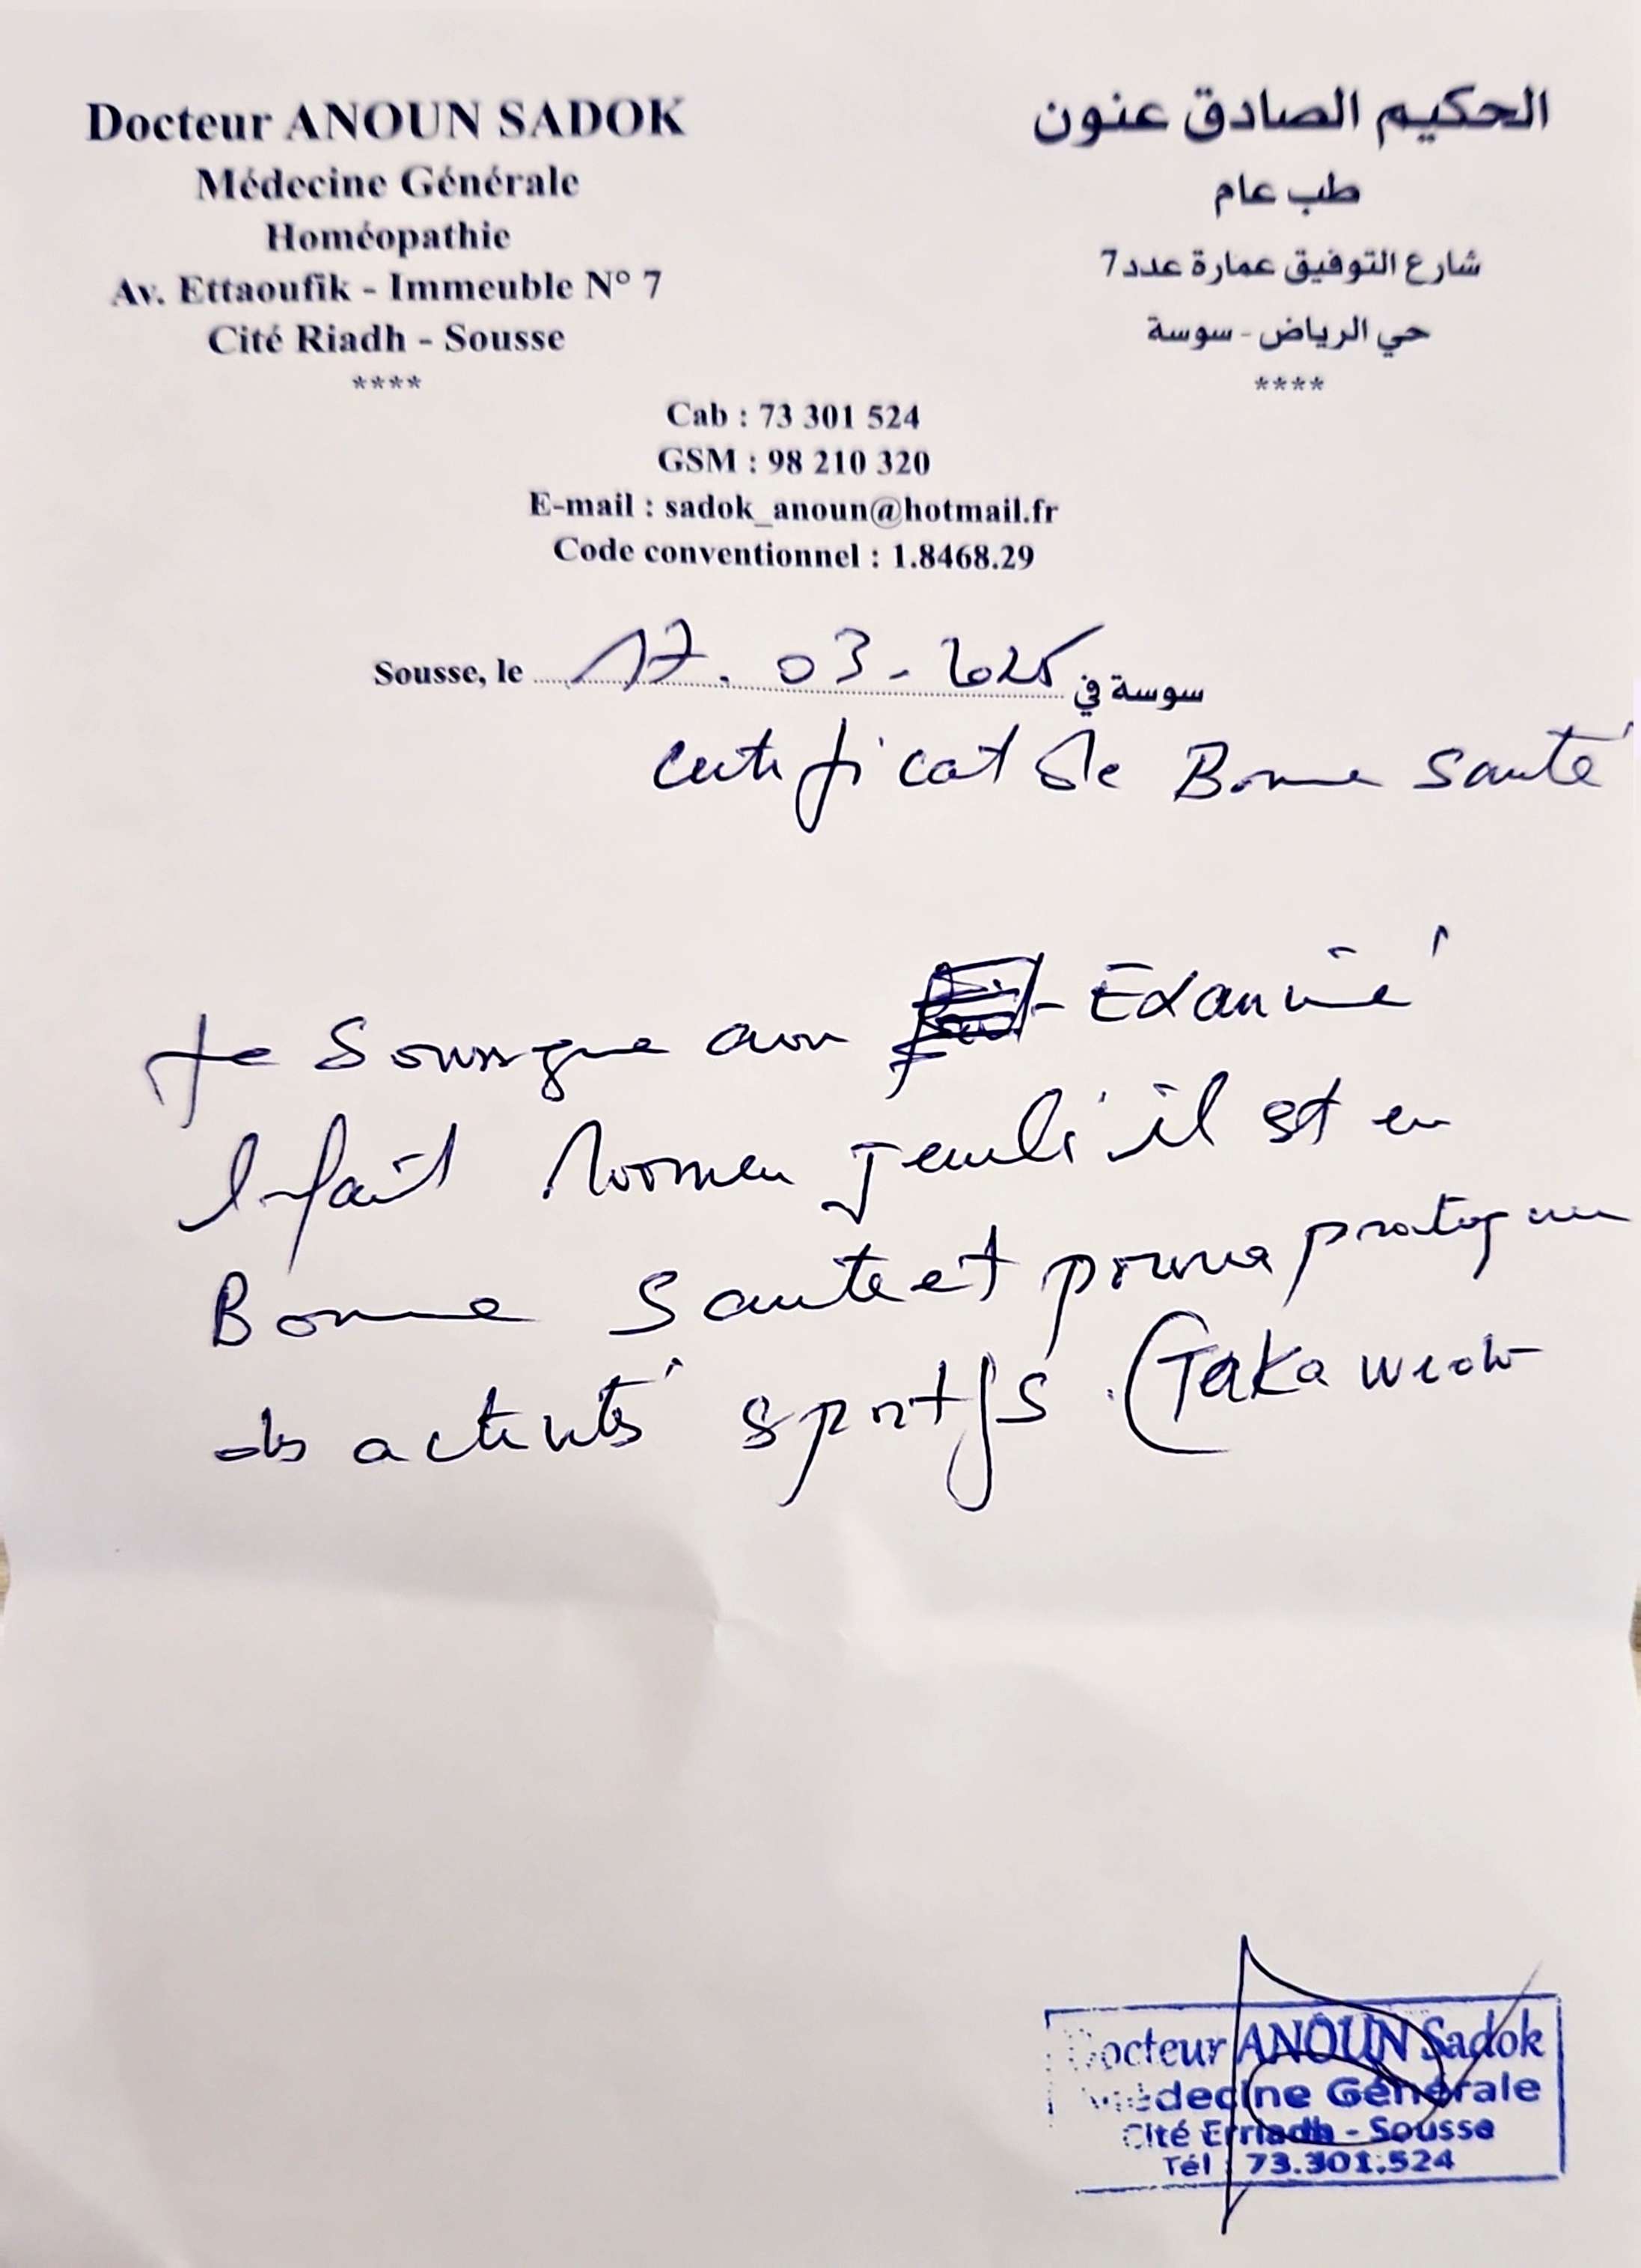 Docteur ANOUN SADOK
Médecine Générale
Homéopathie
Av. Ettaoufik - Immeuble N° 7
Cité Riadh - Sousse
****
الحكيم الصادق عنون
طب عام
شارع التوفيق عمارة عدد 7
حي الرياض - سوسة
****
Cab : 73 301 524
GSM : 98 210 320
E-mail : sadok_anoun@hotmail.fr
Code conventionnel : 1.8468.29
Sousse, le 17.03-2025 سوسة في
Certificat de Bonne santé
Je soussigné avoir Examiné
l'enfant il est en
Bonne Santé et pourra pratiquer
des activités sportifs. (
Docteur ANOUN Sadok
Médecine Générale
Cité Erriadh - Sousse
Tél : 73.301.524